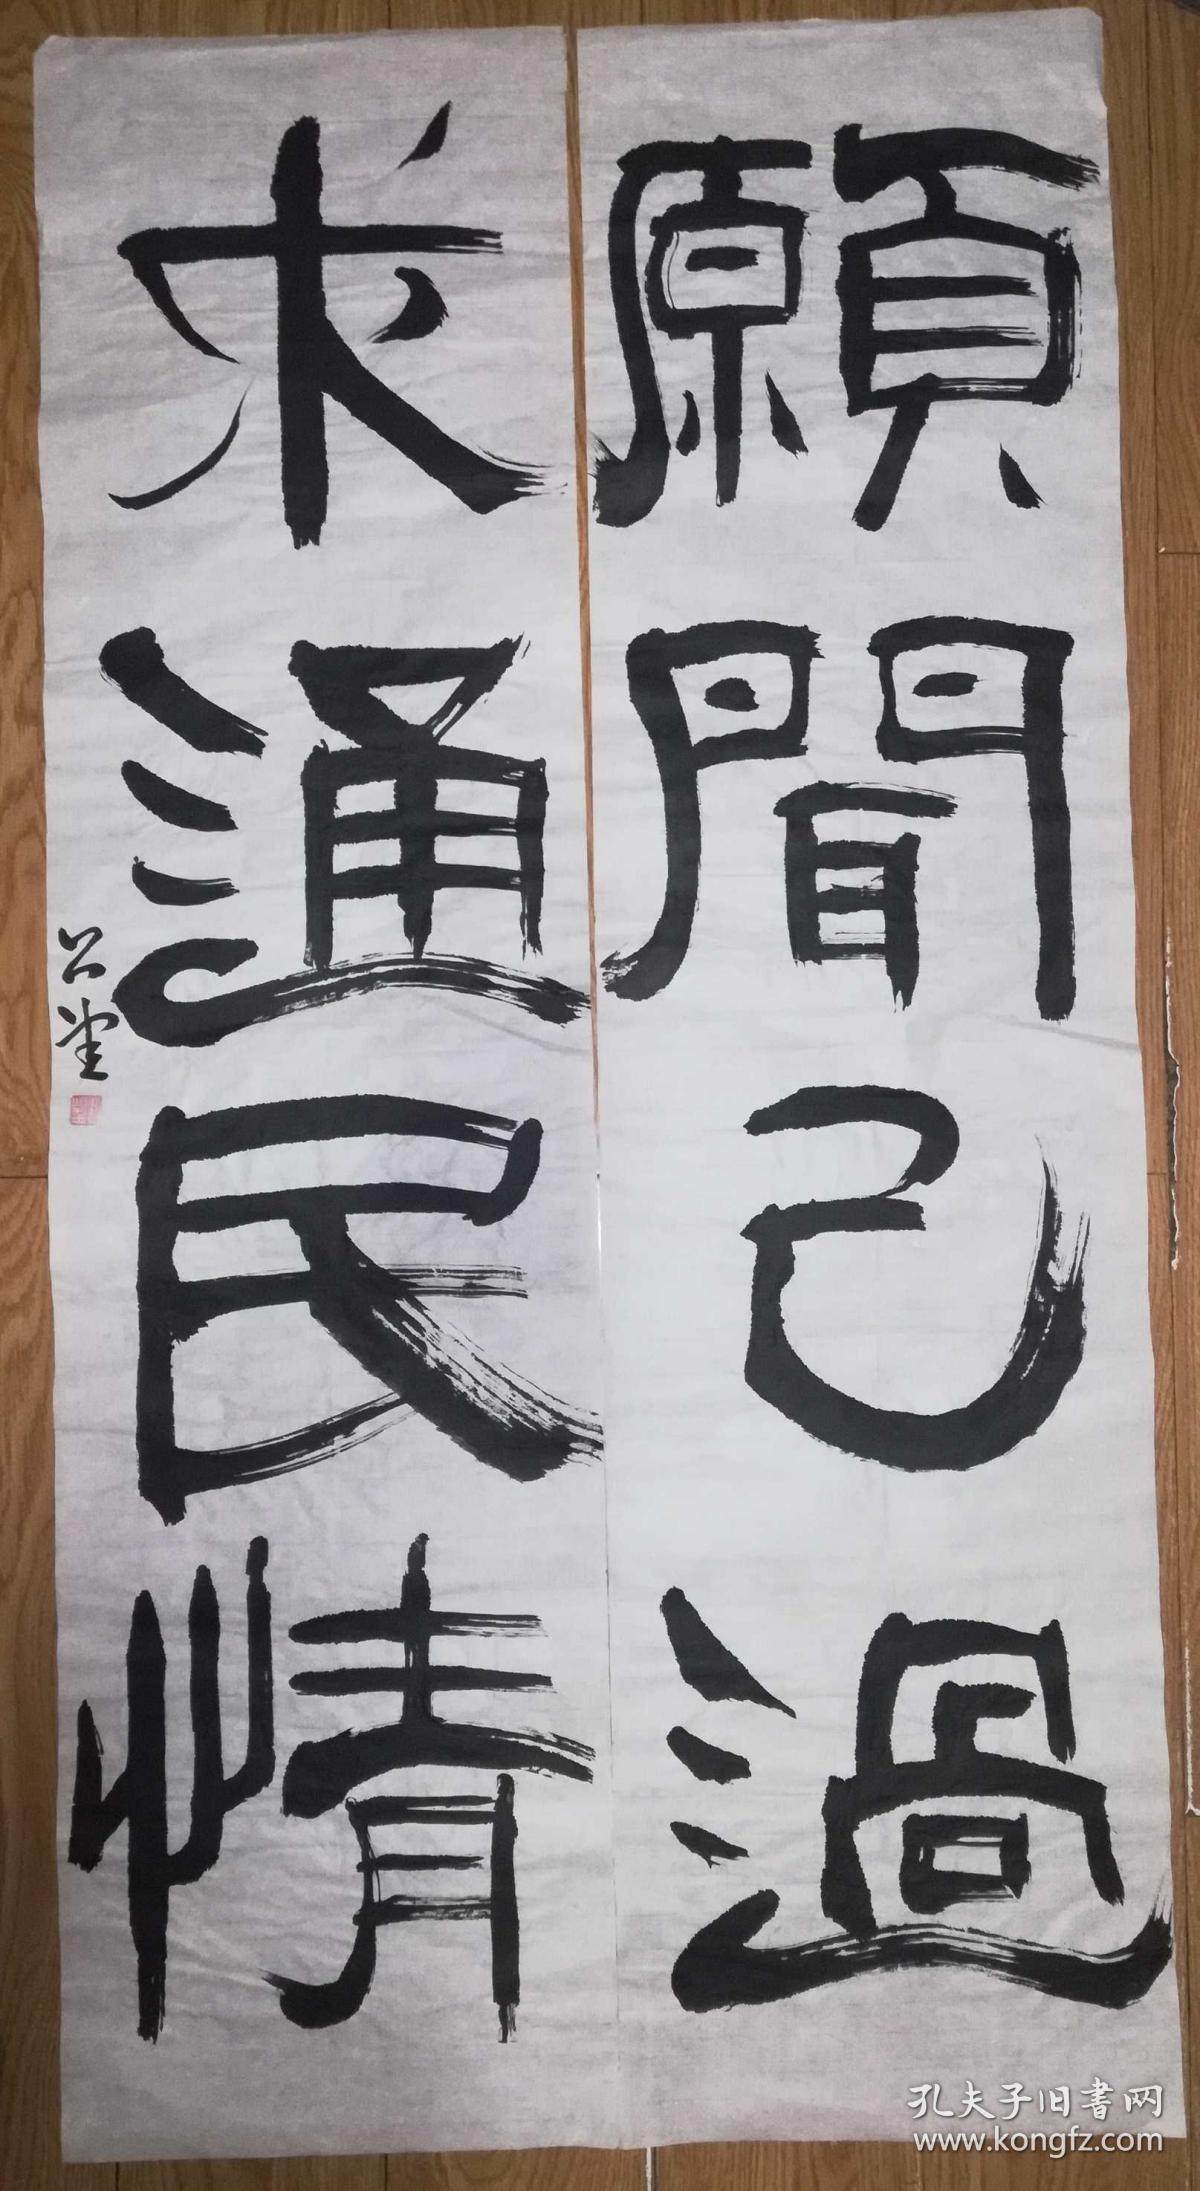 願聞己過
求通民情
公堂
孔夫子旧书网
www.kongfz.com